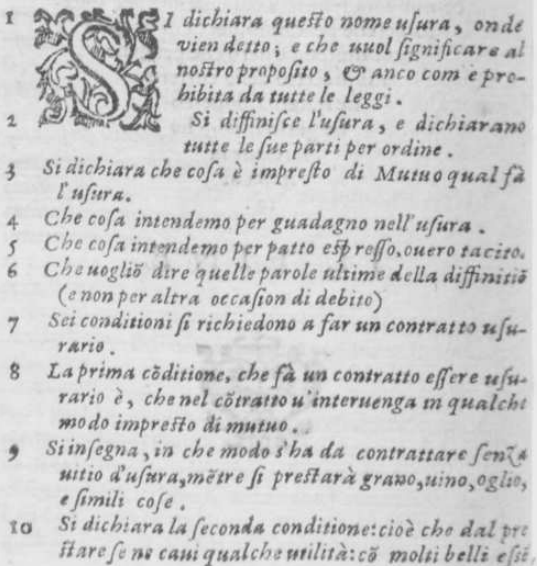 1 SI dichiara queſto nome uſura, onde
vien detto; e che uuol ſignificare al
noſtro propoſito, & anco com è pro-
hibita da tutte le leggi.
2 Si diffiniſce l'uſura, e dichiarano
tutte le ſue parti per ordine.
3 Si dichiara che coſa è impreſto di Mutuo qual fà
l'uſura.
4 Che coſa intendemo per guadagno nell'uſura.
5 Che coſa intendemo per patto eſpreſſo, ouero tacito.
6 Che uogliõ dire quelle parole ultime della diffinitiõ
(e non per altra occaſion di debito)
7 Sei conditioni ſi richiedono a far un contratto uſu-
rario.
8 La prima cõditione, che fà un contratto eſſere uſu-
rario è, che nel cõtratto u'interuenga in qualche
modo impreſto di mutuo.
9 Si inſegna, in che modo s'ha da contrattare ſenza
uitio d'uſura, mẽtre ſi preſtarà grano, uino, oglio,
e ſimili coſe.
10 Si dichiara la ſeconda conditione: cioè che dal pre
ſtare ſe ne caui qualche utilità: cõ molti belli eſſẽ,